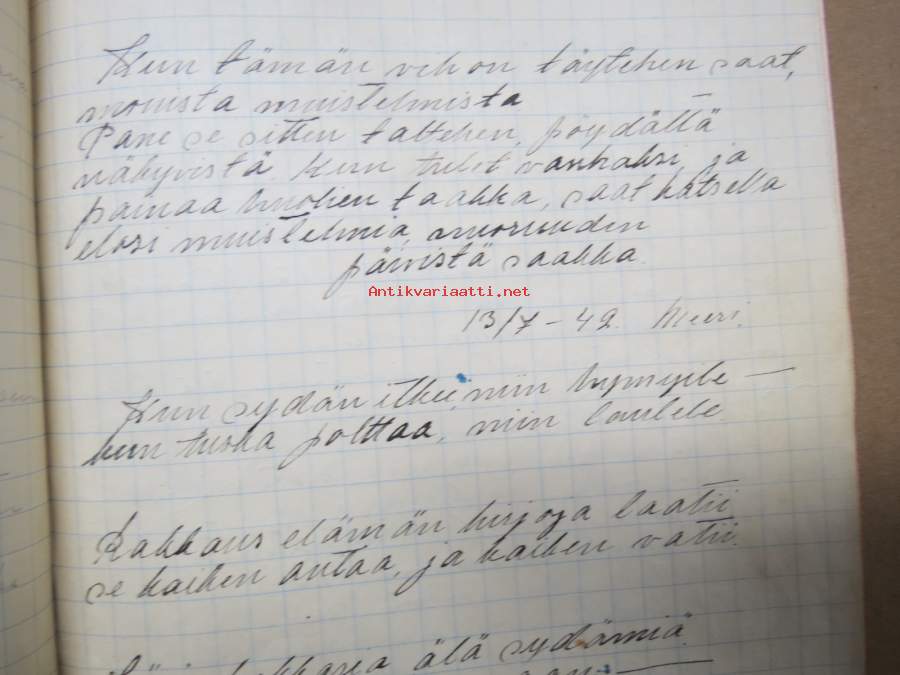 Kun tämän vihon täytehen saat,
monista muistelmista
Pane se sitten taltehen, pöydältä
näkyvistä. Kun tulet vanhaksi, ja
painaa huolien taakka, saat katsella
elosi muistelmia, nuoruuden
päivistä saakka.
Antikvariaatti.net
13/7-42. Meeri.
Kun sydän itkee, niin hymyile —
kun tuska polttaa, niin laulele.
Rakkaus elämän kirjoja laatii
se kaiken antaa, ja kaiken vatii.
älä sydämiä